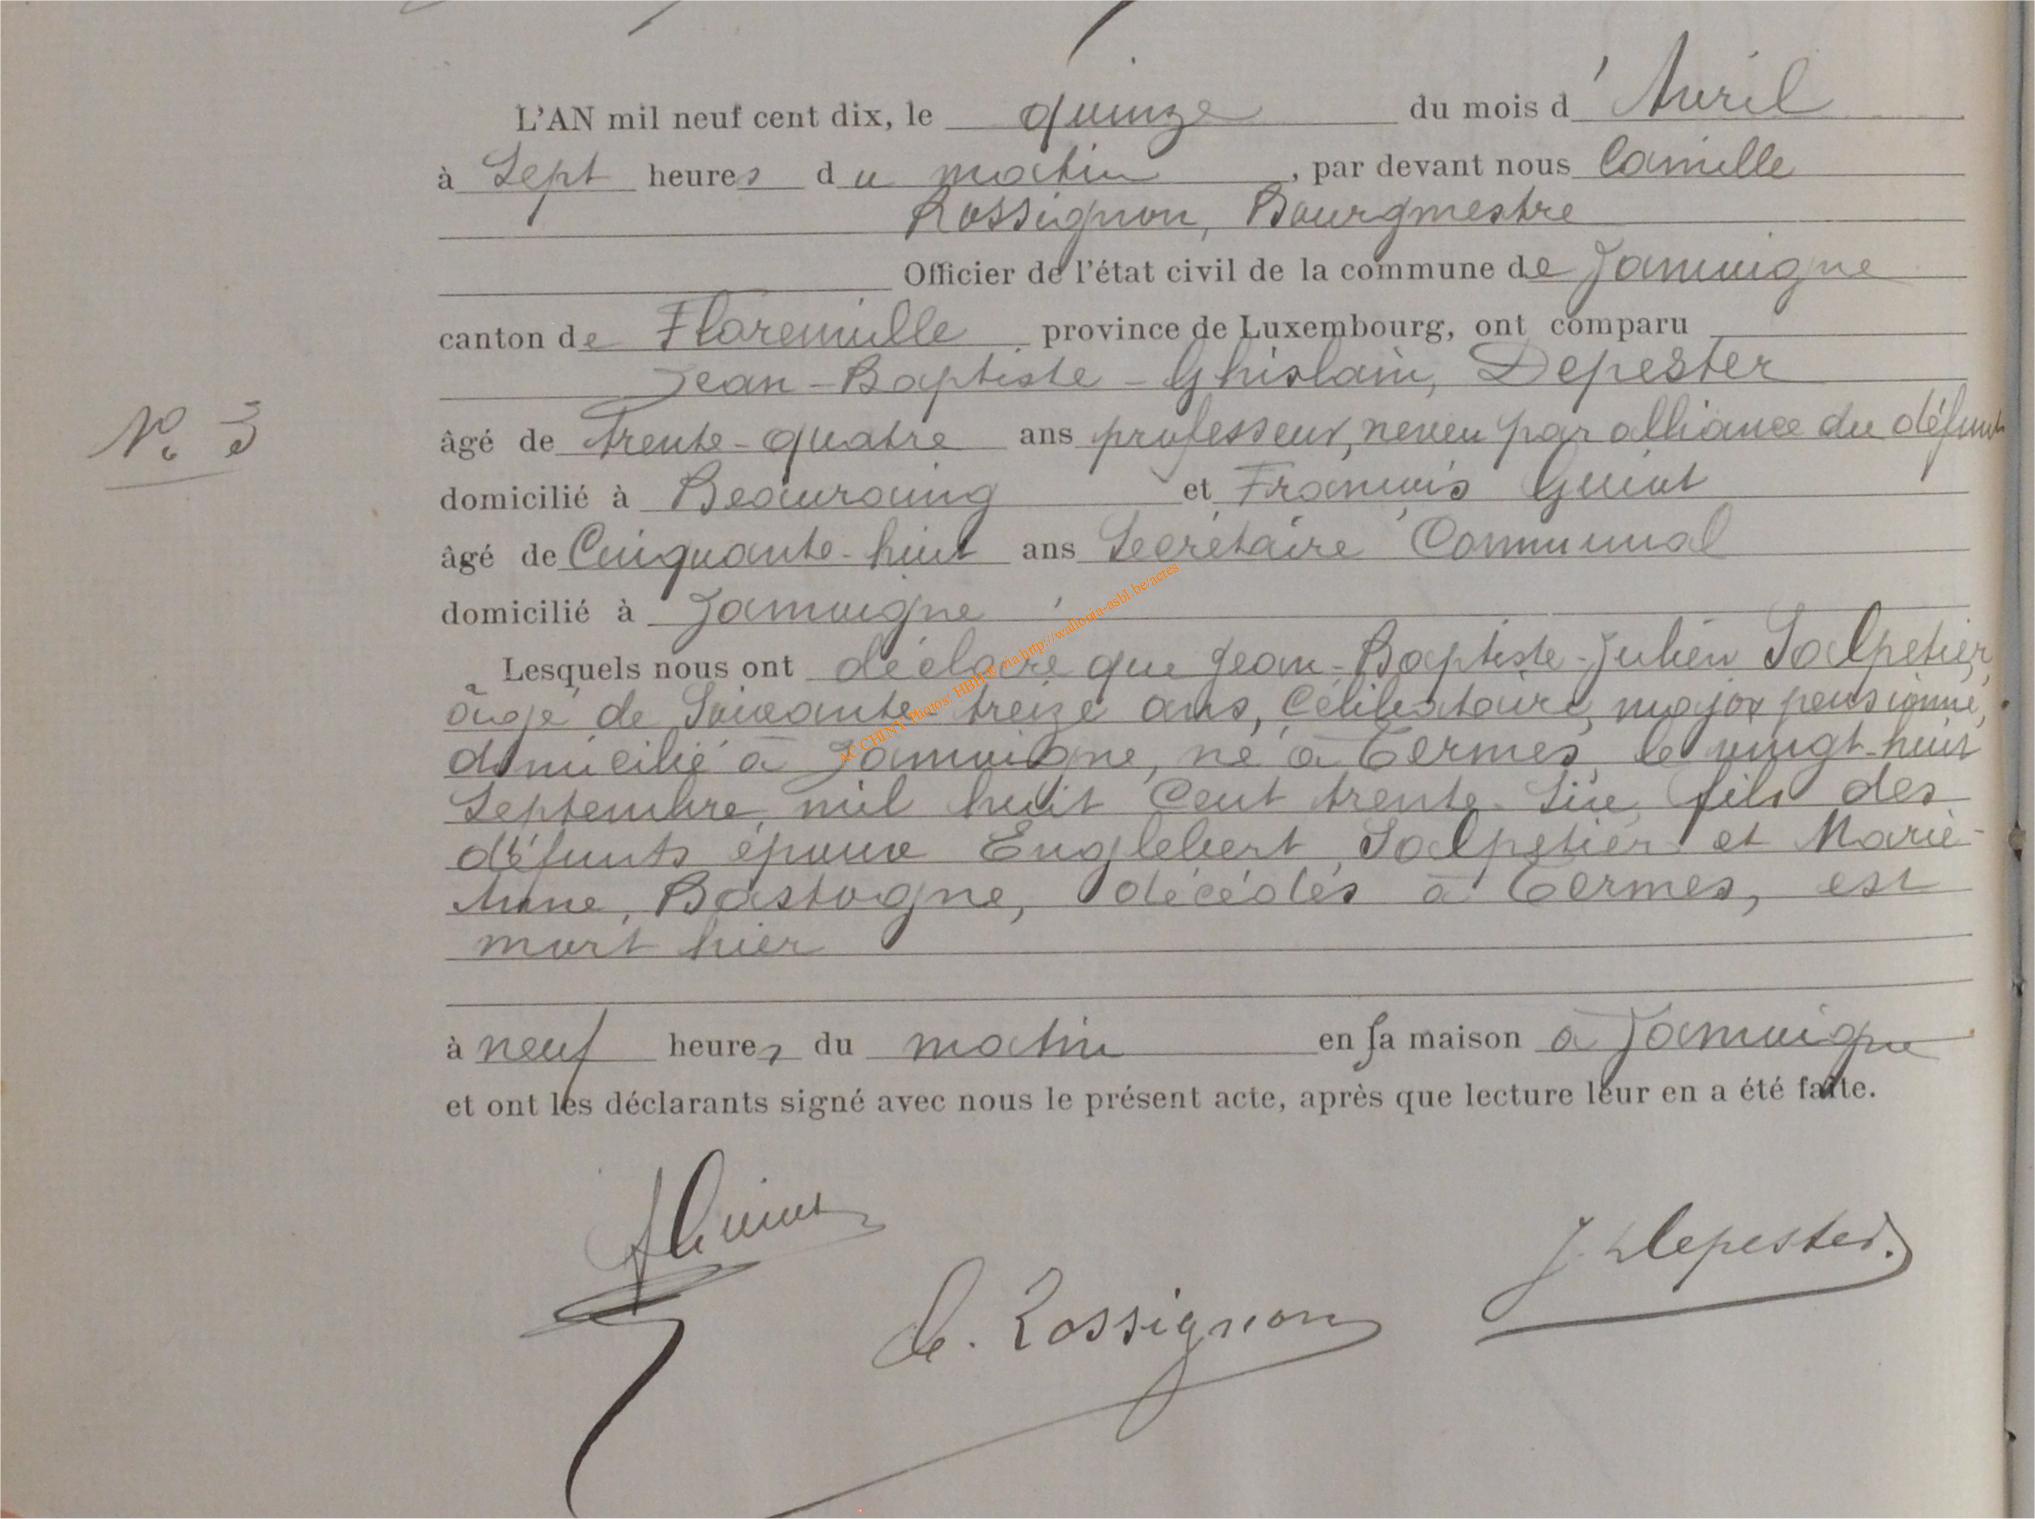 L'AN mil neuf cent dix, le quinze du mois d'Avril
à Sept heures du matin, par devant nous Camille
Rossignon, Bourgmestre
Officier de l'état civil de la commune de Jamoigne
canton de Florenville province de Luxembourg, ont comparu
Jean-Baptiste-Ghislain, Depester
N° 3
âgé de trente-quatre ans professeur, neveu par alliance du défunt
domicilié à Beauraing et François Guiot
âgé de Cinquante-huit ans Secrétaire Communal
domicilié à Jamoigne
Lesquels nous ont déclaré que Jean-Baptiste-Julien Salpetier,
âgé de Soixante-treize ans, Célibataire, major pensionné,
domicilié à Jamoigne, né à Termes, le vingt-huit
Septembre mil huit Cent trente-Six, fils des
défunts époux Englebert Salpetier et Marie-
Anne, Bastogne, décédés à Termes, est
mort hier
à neuf heures du matin en sa maison à Jamoigne
et ont les déclarants signé avec nous le présent acte, après que lecture leur en a été faite.
FGuiot
C. Rossignon
J. Depester.
AC CHINY Photos: HBH © via http://wallonia-asbl.be/actes